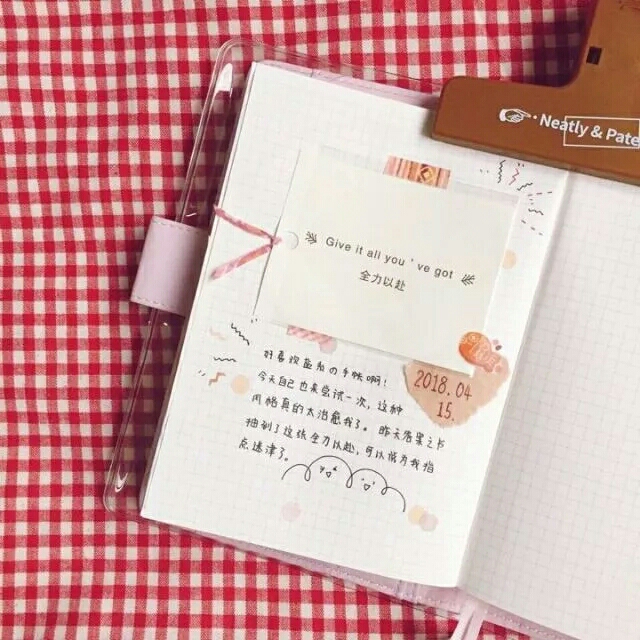 Neatly & Pate
Give it all you ' ve got
全力以赴
2018.04
15.
好喜欢盐系の手帐啊!
今天自己也来尝试一次,这种
风格真的太治愈我了。昨天落果之卡
抽到了这张全力以赴,可以称为我指
点迷津了。